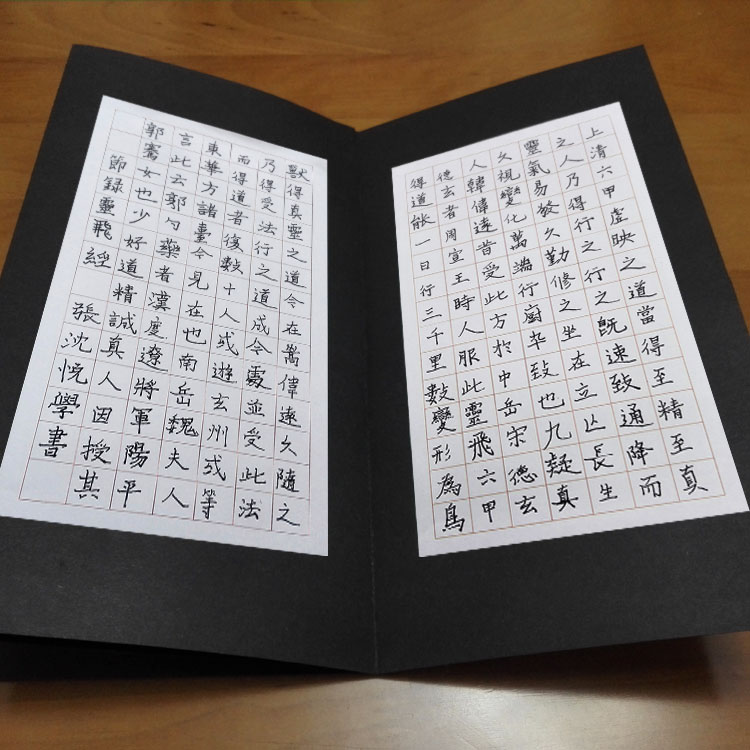 上清六甲虛映之道當得至精至真
之人乃得行之行之既速致通降而
靈氣易發久勤修之坐在立亡長生
久視變化萬端行廚卒致也九疑真
人韓偉遠昔受此方於中岳宋德玄
德玄者周宣王時人服此靈飛六甲
得道能一日行三千里數變形為鳥
獸得真靈之道今在嵩偉遠久隨之
乃得受法行之道成今處並受此法
而得道者復數十人或遊玄州或等
東華方諸臺今見在也南岳魏夫人
言此云郭勺藥者漢度遼將軍陽平
郭騫女也少好道精誠真人因授其
節錄靈飛經 張沈悅學書